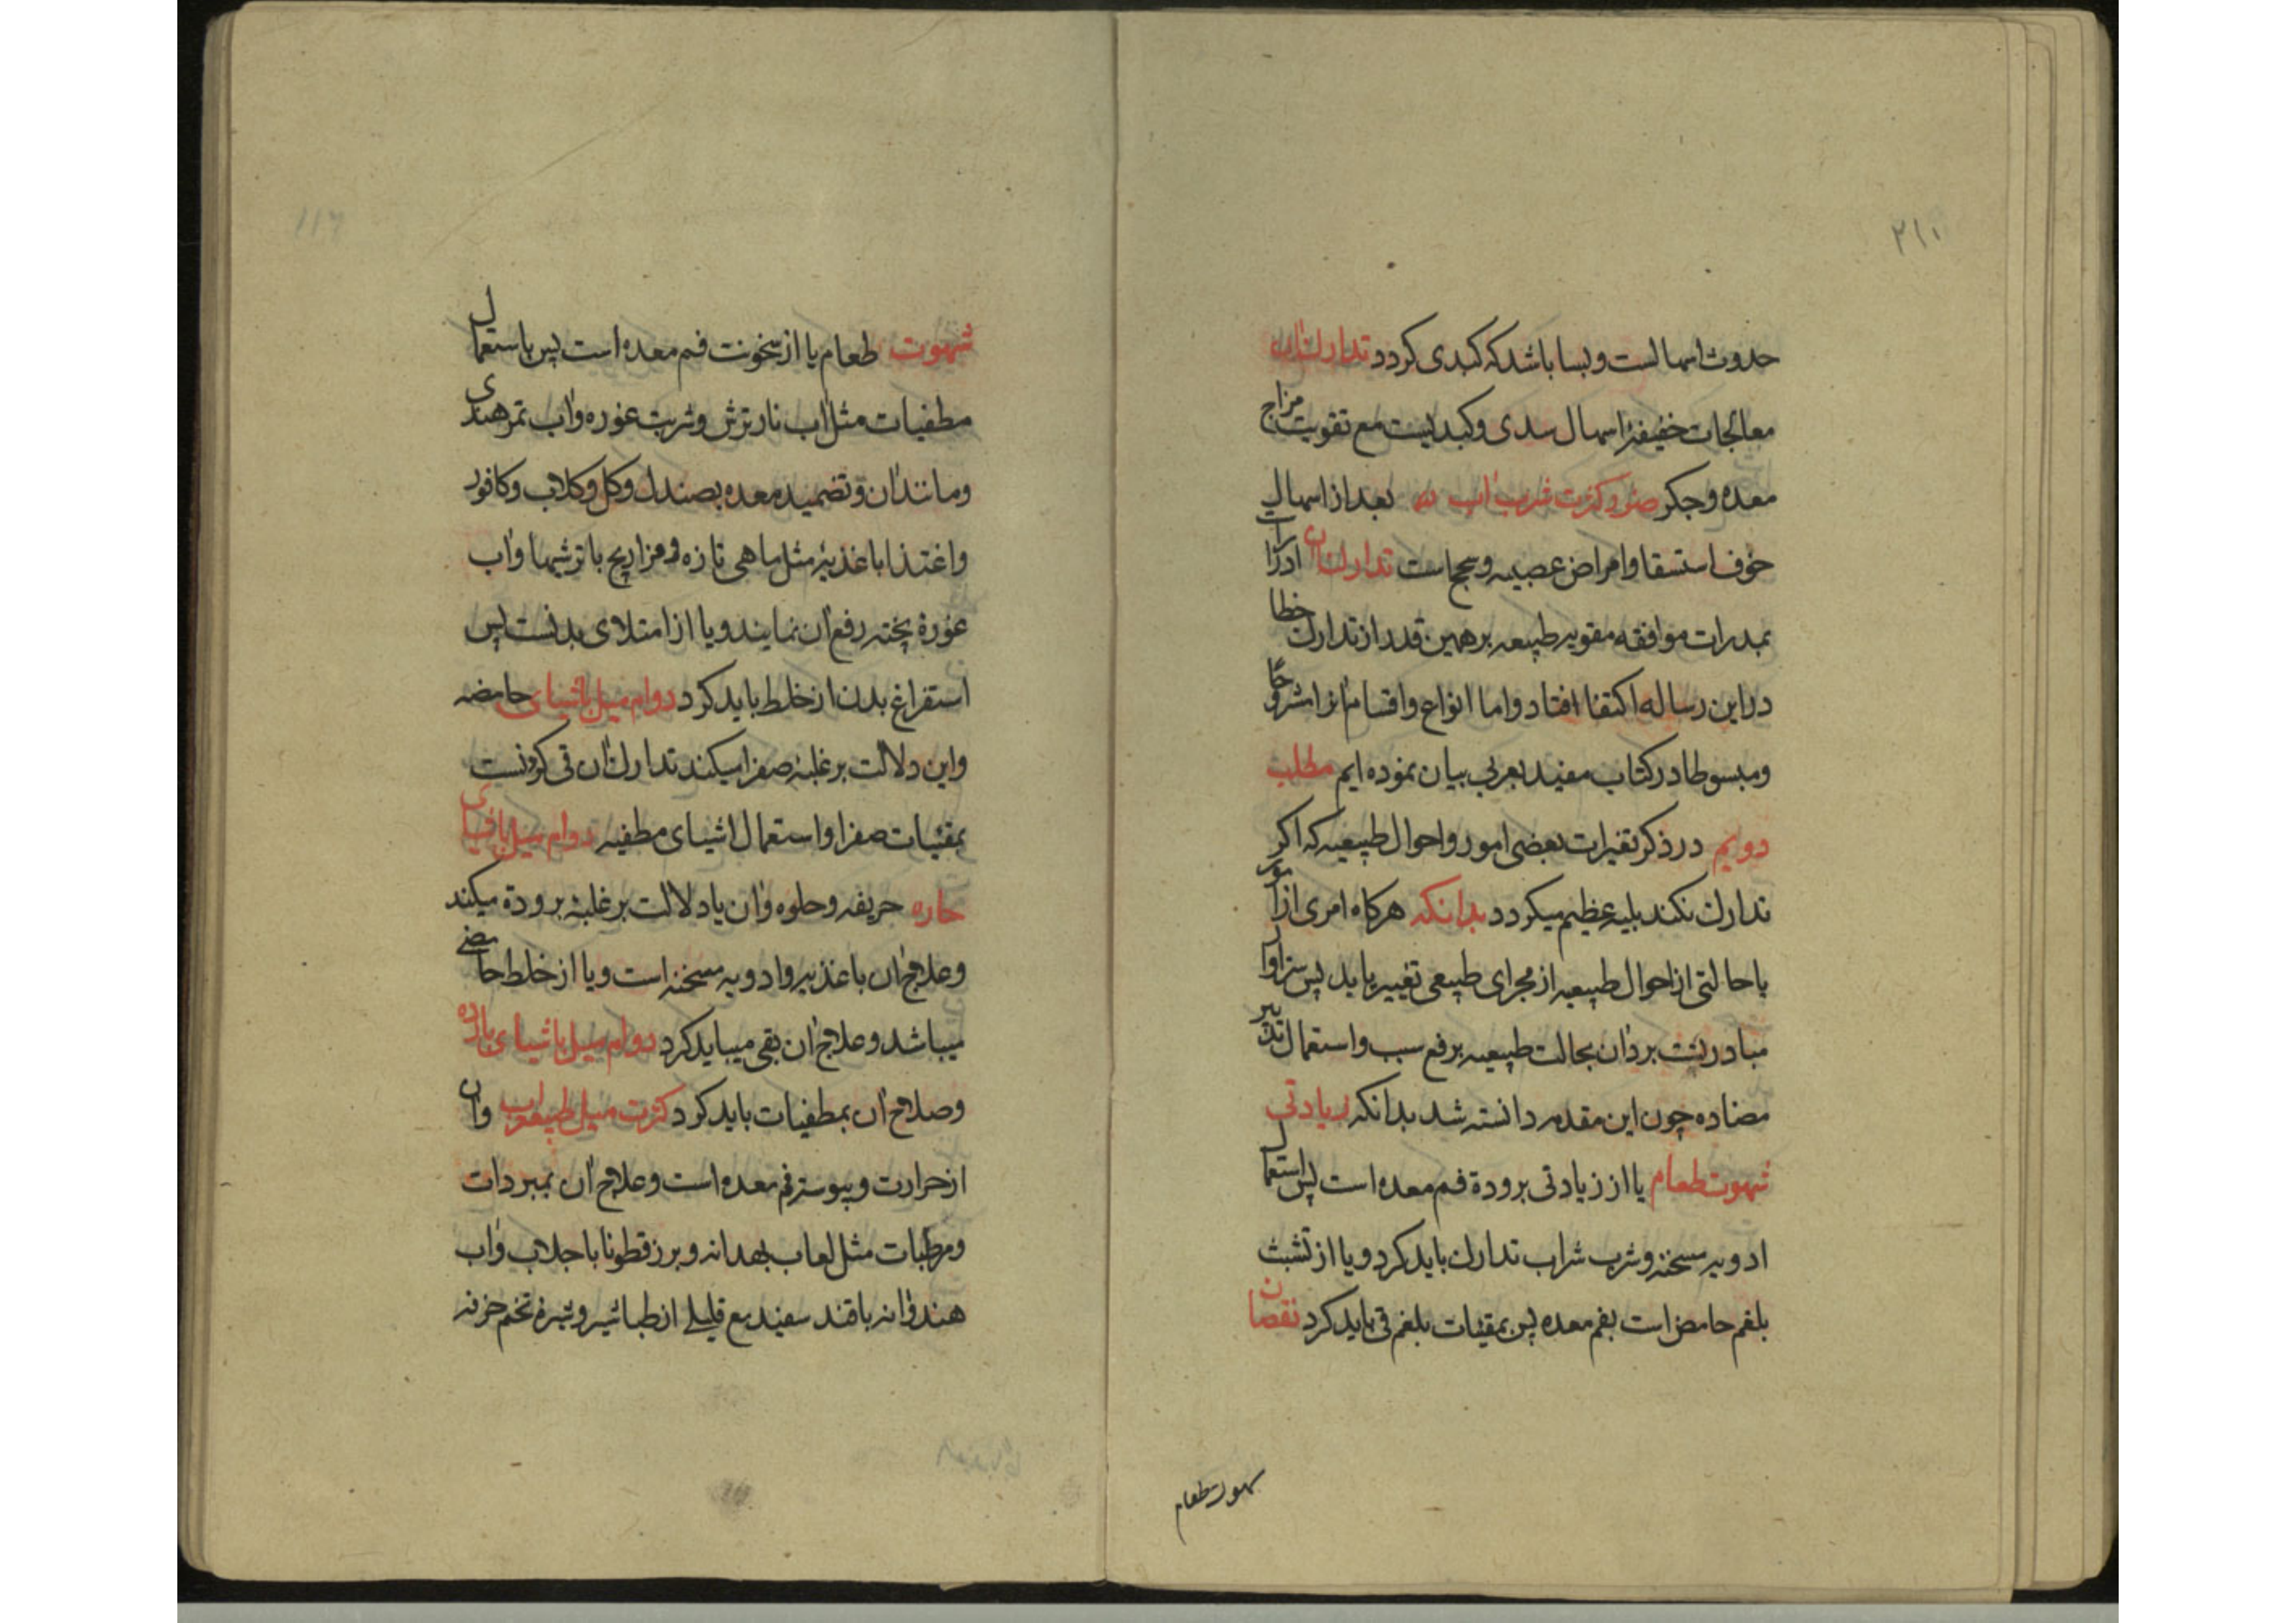 ۲۱۱
حدوث اسهالست و بسا باشد که کبدی کردد تدارك ان
معالجات خفیفۀ اسهال سدی و کبدیست مع تقویت مزاج
معده و جکر ضرر کثرت شرب اب بعد از اسهال
خوف استسقا و امراض عصبیه و سحج است تدارك ان ادرار است
بمدرات موافقه مقویه طبیعه بر همین قدر از تدارك خطا
در این رساله اکتفا افتاد و اما انواع و اقسام انرا مشروحًا
و مبسوطا در کتاب مفید بعربی بیان نموده ایم مطلب
دویم در ذکر تغیرات بعضی امور و احوال طبیعیه که اکر
تدارك نکند بلیه عظیم میکردد بدانکه هرکاه امری از امور
یا حالتی از احوال طبیعیه از مجرای طبیعی تغییر یابد پس سزاوار
مبادرتست برد ان بحالت طبیعیه برفع سبب و استعمال تدبیر
مضاده چون این مقدمه دانسته شد بدانکه زیادتی
شهوت طعام یا از زیادتی برودة فم معده است پس استعمال
ادویه مسخنه و شرب شراب تدارك باید کرد و یا از تشبث
بلغم حامض است بفم معده پس بمقیئات بلغم قی باید کرد نقصان
شهوت طعام
۱۱۶
شهوت طعام یا از سخونت فم معده است پس باستعمال
مطفیات مثل اب نار ترش و شربت غوره و اب تمر هندی
و مانند ان و تضمید معده بصندل و کل و کلاب و کافور
و اغتذا باغذیۀ مثل ماهی تازه و فراریج با ترشیها و اب
غورۀ پخته رفع ان نمایند و یا از امتلای بدنست پس
استفراغ بدن از خلط باید کرد دوام میل باشیای حامضه
و این دلالت بر غلبۀ صفرا میکند تدارك ان قی کردنست
بمقئیات صفرا و استعمال اشیای مطفیه دوام میل باشیای
حاره حریفه و حلوه و ان یا دلالت بر غلبۀ برودة میکند
و علاج ان باغذیه و ادویه مسخنه است و یا از خلط حامضی
میباشد و علاج ان بقی میباید کرد دوام میل باشیای بارده
و صلاح ان بمطفیات باید کرد کثرت میل طبع باب و ان
از حرارت و یبوسة فم معده است و علاج ان بمبردات
و مرطبات مثل لعاب بهدانه و بزر قطونا با جلاب و اب
هندوانه با قند سفید مع قلیلی از طباشیر و شیرۀ تخم خرفه